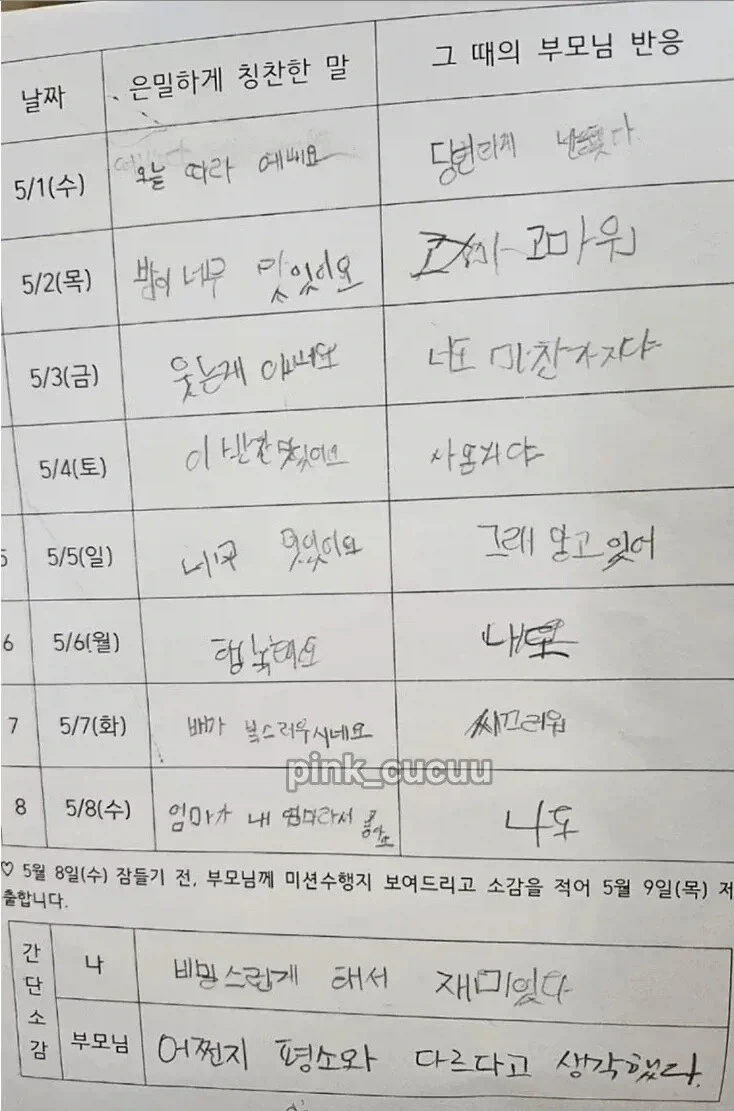 날짜 은밀하게 칭찬한 말 그 때의 부모님 반응
5/1(수) 오늘 따라 에뻐요
5/2(목) 밤이 너무 맛있어요 고마워
5/3(금) 웃는게 너도 마찬가지야
5/4(토) 이 맛있어요
5 5/5(일) 맛있어요 그래 알고 있어
6 5/6(월) 행복해요
7 5/7(화) 배가 복스러우시네요 씨끄러워
8 5/8(수) 엄마가 내 엄마라서 좋아요 나도
♡ 5월 8일(수) 잠들기 전, 부모님께 미션수행지 보여드리고 소감을 적어 5월 9일(목) 제
출합니다.
간단소감
나 비밀스럽게 해서 재미있다
부모님 어쩐지 평소와 다르다고 생각했다.
pink_cucuu